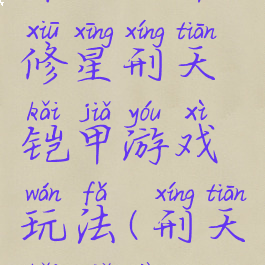 xiū xīng xíng tiān
修星刑天
kǎi jiǎ yóu xì
铠甲游戏
wán fǎ xíng tiān
玩法(刑天